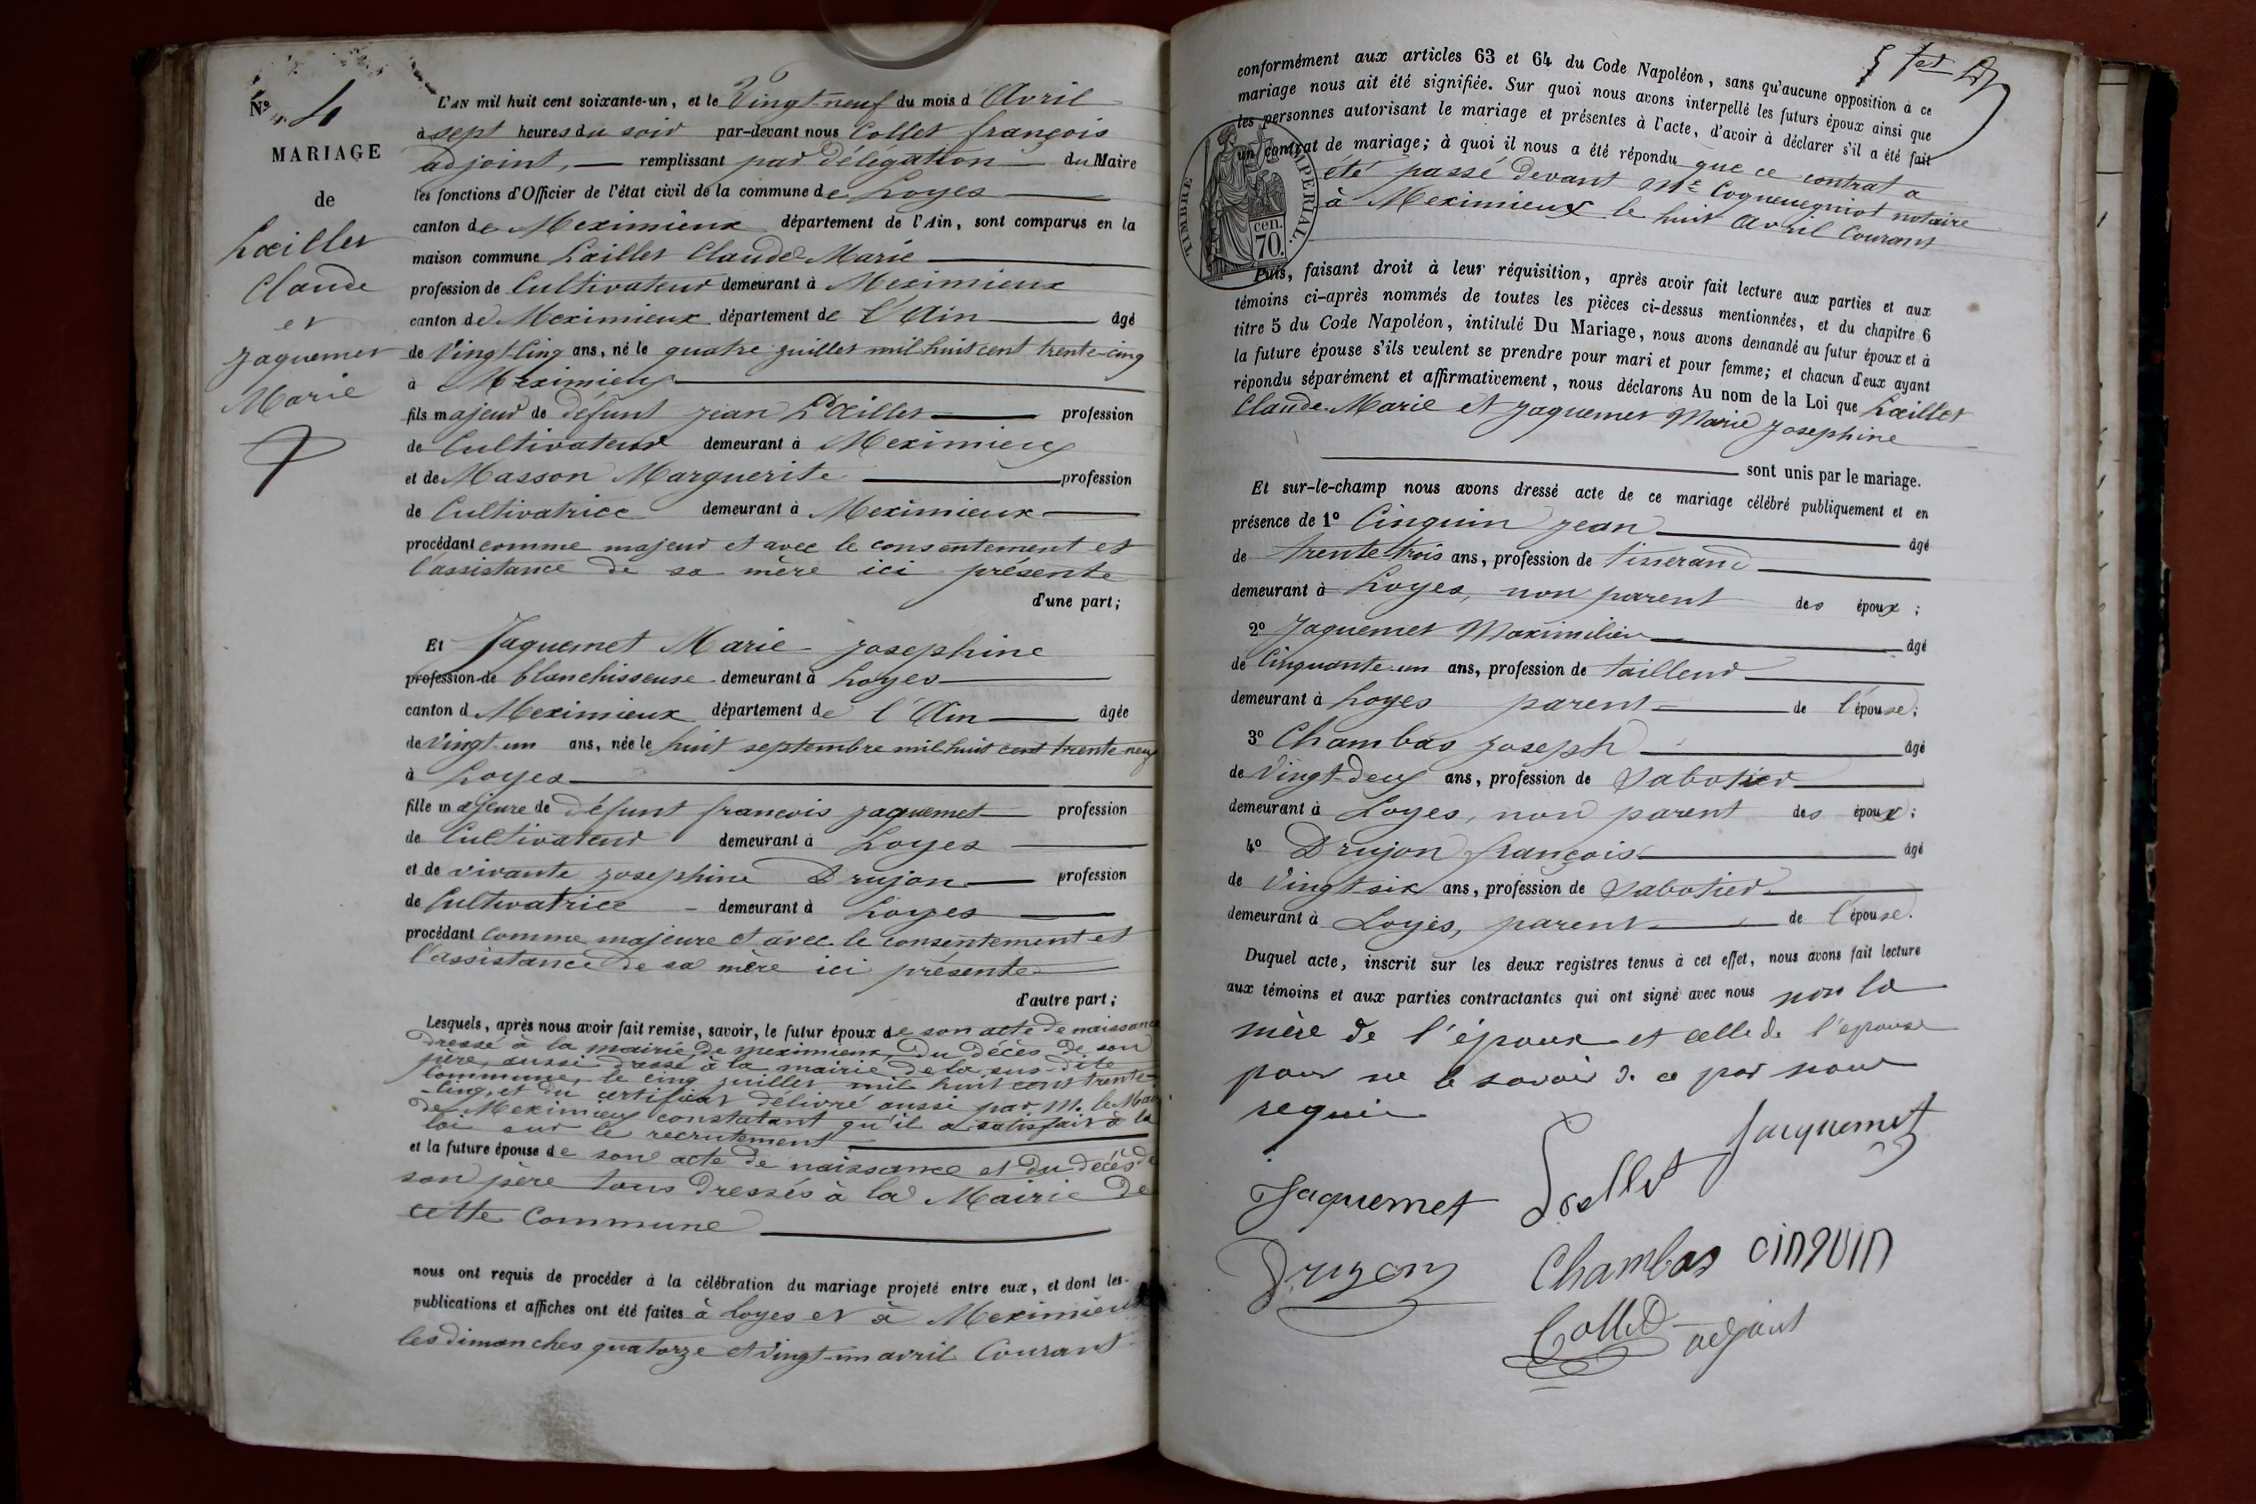 N° 4
MARIAGE
de
Lœillet
Claude
et
Jaquemet
Marie
L'AN mil huit cent soixante-un, et le Vingt-neuf du mois d'Avril
à sept heures du soir par-devant nous Collet françois
adjoint, remplissant par délégation du Maire
les fonctions d'Officier de l'état civil de la commune de Loyes
canton de Meximieux département de l'Ain, sont comparus en la
maison commune Lœillet Claude Marie
profession de Cultivateur demeurant à Meximieux
canton de Meximieux département de l'Ain âgé
de Vingt-Cinq ans, né le quatre juillet mil huit cent trente-cinq
à Meximieux
fils majeur de défunt Jean Lœillet profession
de Cultivateur demeurant à Meximieux
et de Masson Marguerite profession
de Cultivatrice demeurant à Meximieux
procédant comme majeur et avec le consentement et
l'assistance de sa mère ici présente
d'une part;
Et Jaquemet Marie Josephine
profession de blanchisseuse demeurant à Loyes
canton d Meximieux département de l'Ain âgée
de Vingt-un ans, née le huit septembre mil huit cent trente-neuf
à Loyes
fille majeure de défunt françois Jaquemet profession
de Cultivateur demeurant à Loyes
et de vivante Josephine Drujon profession
de Cultivatrice demeurant à Loyes
procédant comme majeure et avec le consentement et
l'assistance de sa mère ici présente
d'autre part;
Lesquels, après nous avoir fait remise, savoir, le futur époux de son acte de naissance
dressé à la mairie de Meximieux, du décès de son
père, aussi dressé à la mairie de la sus-dite
Commune, le cinq juillet mil huit cent trente-
-cinq, et du certificat délivré aussi par M. le Mai
de Meximieux constatant qu'il a satisfait à la
loi sur le recrutement
et la future épouse de son acte de naissance et du décès de
son père tous dressés à la Mairie de
cette Commune
nous ont requis de procéder à la célébration du mariage projeté entre eux, et dont les
publications et affiches ont été faites à Loyes et à Meximieux
les dimanches quatorze et vingt-un avril Courant
conformément aux articles 63 et 64 du Code Napoléon, sans qu'aucune opposition à ce
mariage nous ait été signifiée. Sur quoi nous avons interpellé les futurs époux ainsi que
les personnes autorisant le mariage et présentes à l'acte, d'avoir à déclarer s'il a été fait
un contrat de mariage; à quoi il nous a été répondu que ce contrat a
été passé devant Me Coqueugniot notaire
à Meximieux le huit Avril Courant
TIMBRE IMPERIAL.
cen.
70.
Puis, faisant droit à leur réquisition, après avoir fait lecture aux parties et aux
témoins ci-après nommés de toutes les pièces ci-dessus mentionnées, et du chapitre 6
titre 5 du Code Napoléon, intitulé Du Mariage, nous avons demandé au futur époux et à
la future épouse s'ils veulent se prendre pour mari et pour femme; et chacun d'eux ayant
répondu séparément et affirmativement, nous déclarons Au nom de la Loi que Lœillet
Claude-Marie et Jaquemet Marie Josephine
sont unis par le mariage.
Et sur-le-champ nous avons dressé acte de ce mariage célébré publiquement et en
présence de 1° Cinquin Jean âgé
de trente-trois ans, profession de tisserand
demeurant à Loyes, non parent des époux;
2° Jaquemet Maximilien âgé
de Cinquante-un ans, profession de tailleur
demeurant à Loyes parent de l'épouse;
3° Chambas Joseph âgé
de Vingt-Deux ans, profession de Sabotier
demeurant à Loyes, non parent des époux;
4° Drujon françois âgé
de Vingt-six ans, profession de Sabotier
demeurant à Loyes, parent de l'épouse.
Duquel acte, inscrit sur les deux registres tenus à cet effet, nous avons fait lecture
aux témoins et aux parties contractantes qui ont signé avec nous non la
mère de l'époux et celle de l'épouse
pour ne le savoir de ce par nous
requis
Jacquemet
Jaquemet Loellet
Drujon Chambas cinquin
Collet adjoint